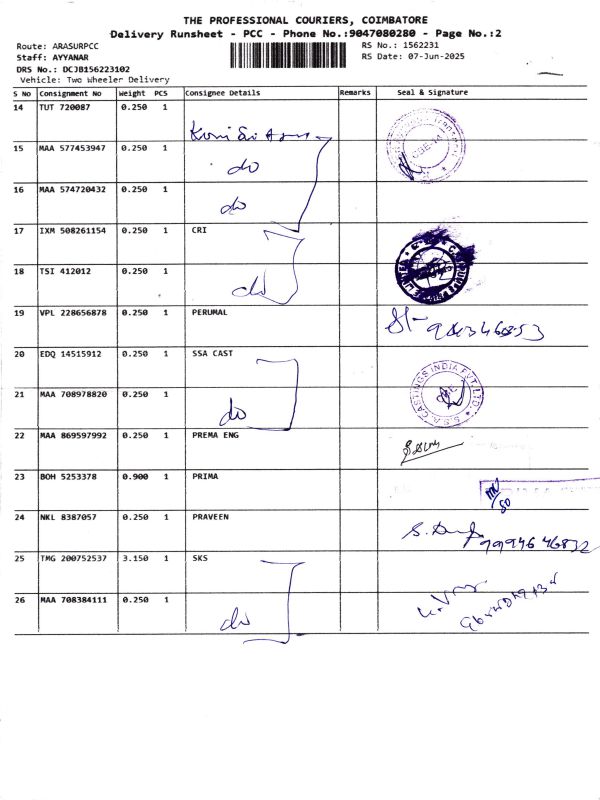 THE PROFESSIONAL COURIERS, COIMBATORE
Delivery Runsheet - PCC - Phone No.:9047080280 - Page No.:2
Route: ARASURPCC RS No.: 1562231
Staff: AYYANAR RS Date: 07-Jun-2025
DRS No.: DCJB156223102
Vehicle: Two Wheeler Delivery
S No Consignment No Weight PCS Consignee Details Remarks Seal & Signature
14 TUT 720087 0.250 1
15 MAA 577453947 0.250 1
do
16 MAA 574720432 0.250 1
do
17 IXM 508261154 0.250 1 CRI
18 TSI 412012 0.250 1
do
19 VPL 228656878 0.250 1 PERUMAL
20 EDQ 14515912 0.250 1 SSA CAST
S.S.A CASTINGS INDIA PVT LTD
21 MAA 708978820 0.250 1
do
22 MAA 869597992 0.250 1 PREMA ENG
23 BOH 5253378 0.900 1 PRIMA
24 NKL 8387057 0.250 1 PRAVEEN
9994646832
25 TMG 200752537 3.150 1 SKS
26 MAA 708384111 0.250 1
do